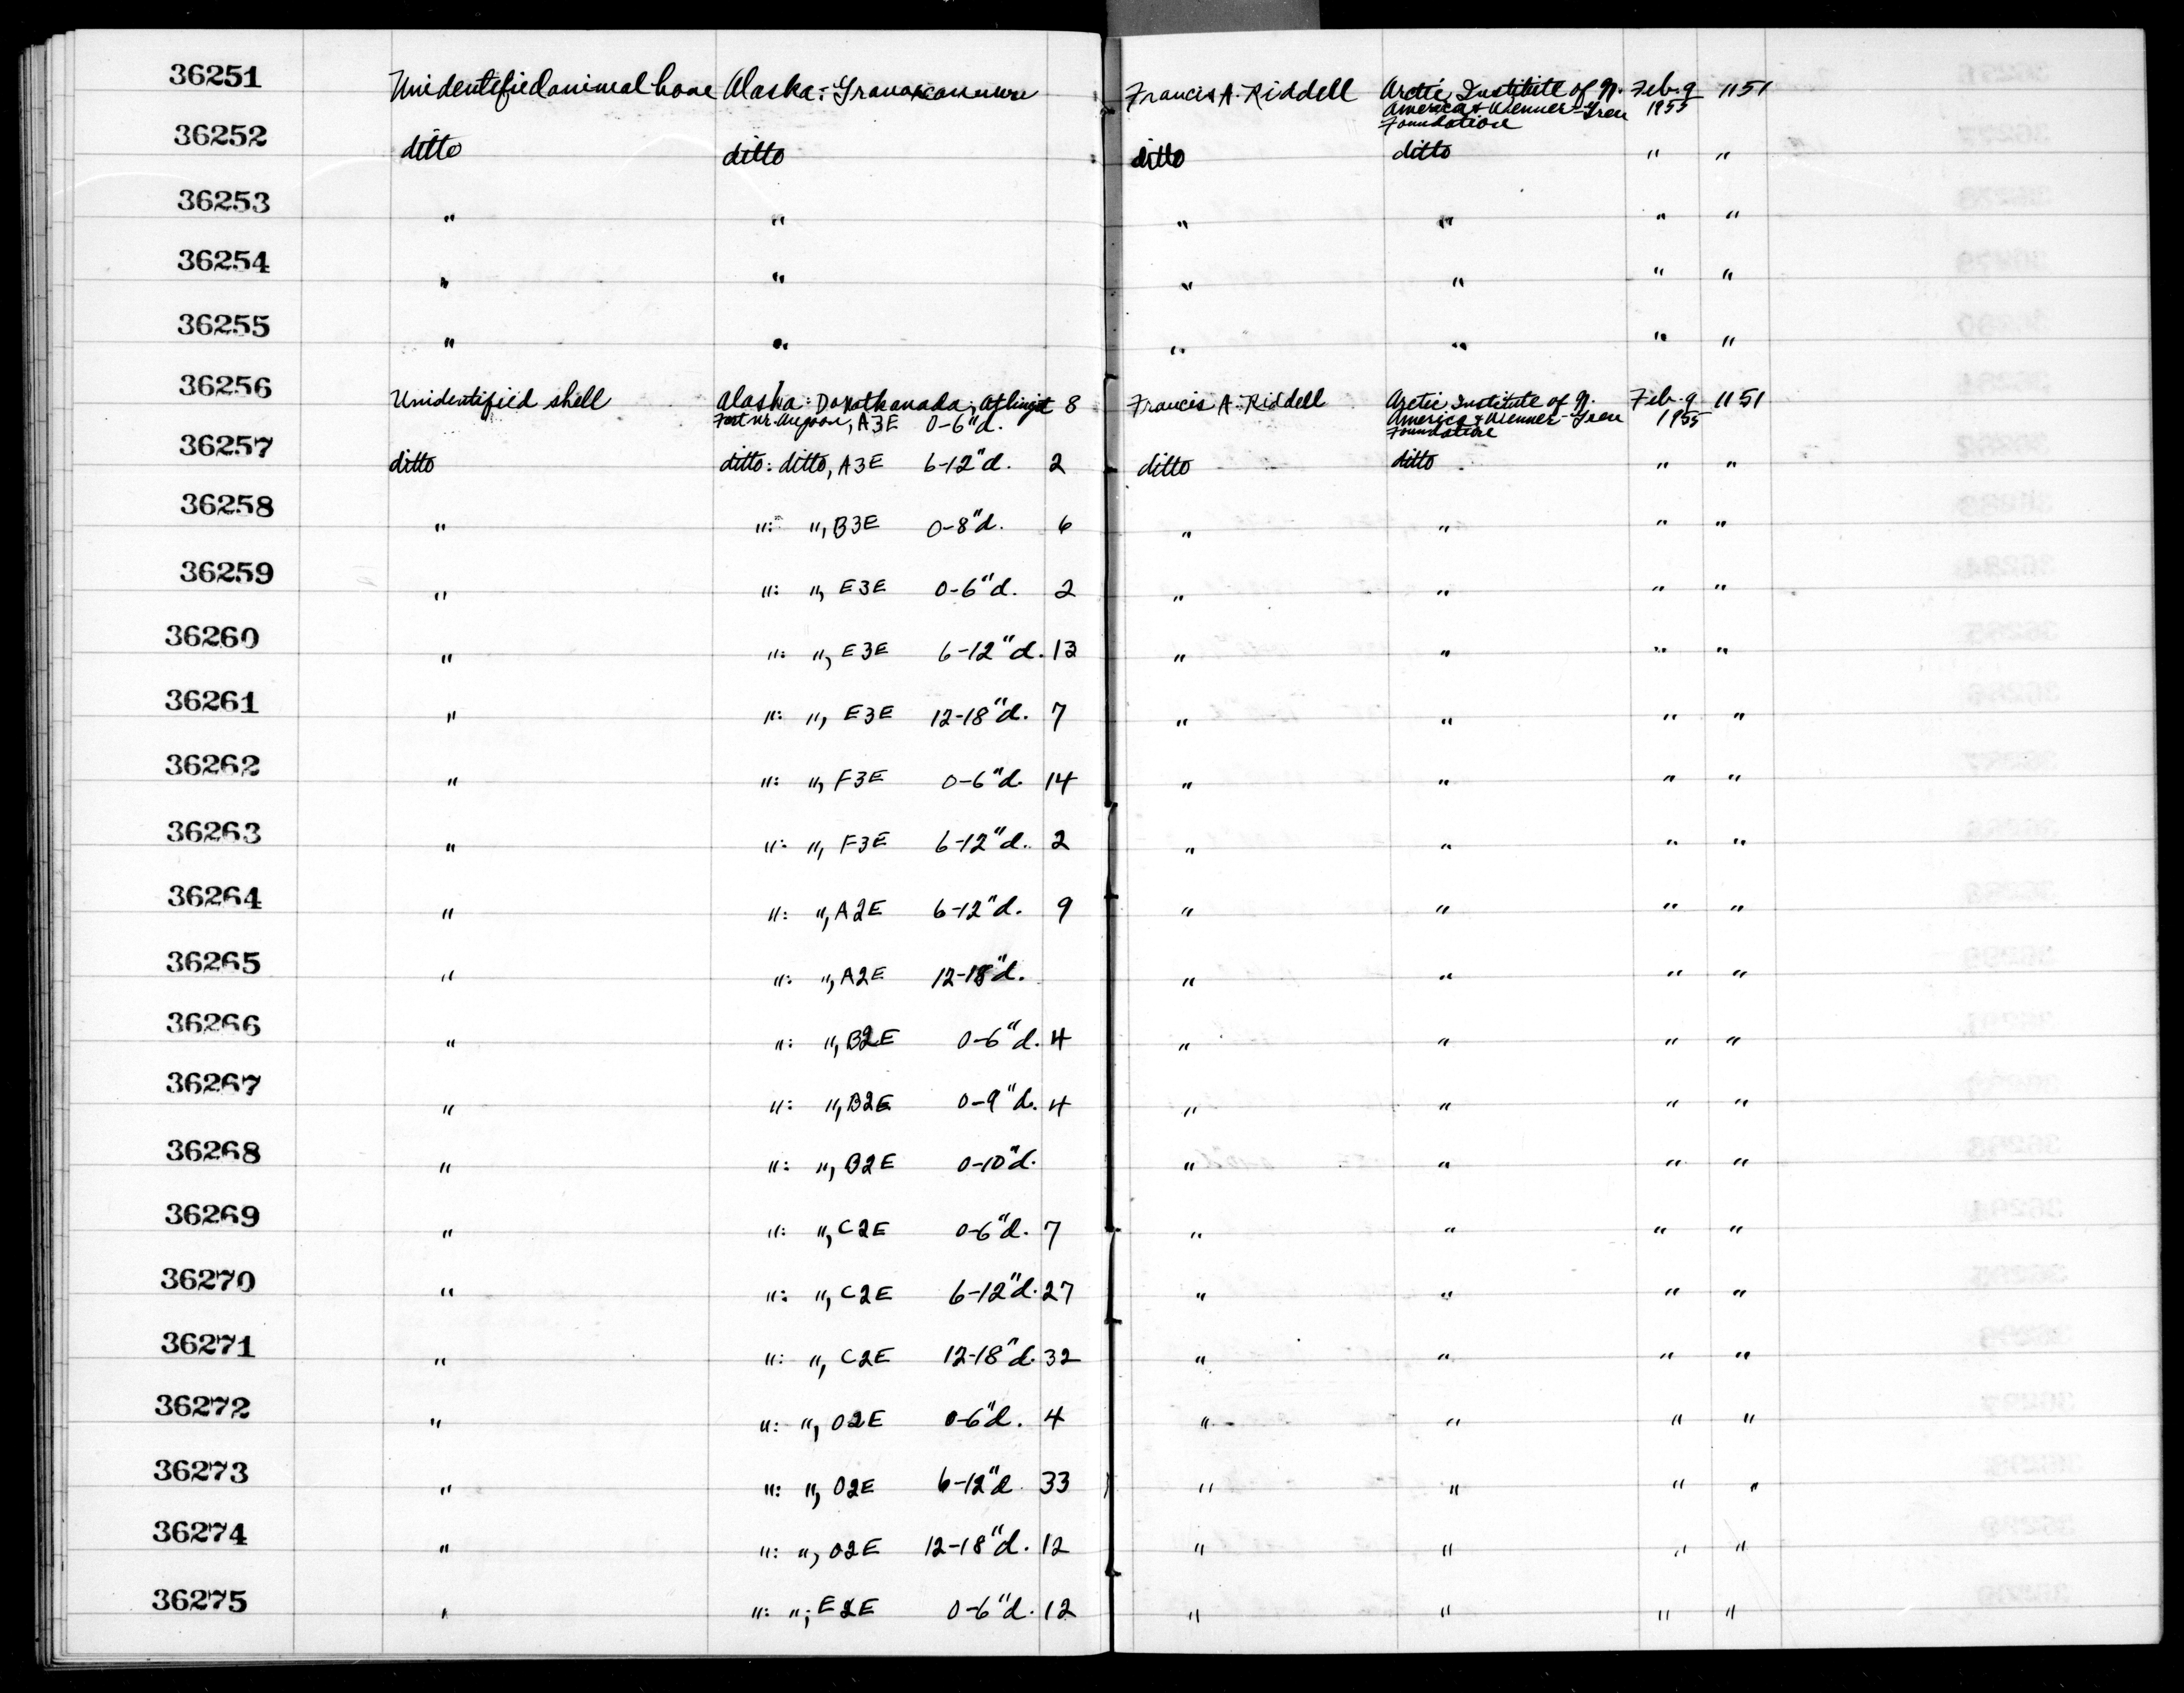 36251 Unidentified animal bone Alaska: Francis A. Riddell Arctic Institute of N. Feb. 9 1151
America & Wenner-Gren 1955
Foundation
36252 ditto ditto ditto ditto " "
36253 " " " " " "
36254 " " " " " "
36255 " " " " " "
36256 Unidentified shell Alaska: Daxatkanada, 8 Francis A. Riddell Arctic Institute of N. Feb. 9 1151
Fort nr. Angoon, A3E 0-6"d. America & Wenner-Gren 1955
Foundation
36257 ditto ditto: ditto, A3E 6-12"d. 2 ditto ditto " "
36258 " ": ", B3E 0-8"d. 6 " " " "
36259 " ": ", E3E 0-6"d. 2 " " " "
36260 " ": ", E3E 6-12"d. 13 " " " "
36261 " ": ", E3E 12-18"d. 7 " " " "
36262 " ": ", F3E 0-6"d. 14 " " " "
36263 " ": ", F3E 6-12"d. 2 " " " "
36264 " ": ", A2E 6-12"d. 9 " " " "
36265 " ": ", A2E 12-18"d. " " " "
36266 " ": ", B2E 0-6"d. 4 " " " "
36267 " ": ", B2E 0-9"d. 4 " " " "
36268 " ": ", B2E 0-10"d. " " " "
36269 " ": ", C2E 0-6"d. 7 " " " "
36270 " ": ", C2E 6-12"d. 27 " " " "
36271 " ": ", C2E 12-18"d. 32 " " " "
36272 " ": ", D2E 0-6"d. 4 " " " "
36273 " ": ", D2E 6-12"d. 33 " " " "
36274 " ": ", D2E 12-18"d. 12 " " " "
36275 " ": "; E2E 0-6"d. 12 " " " "